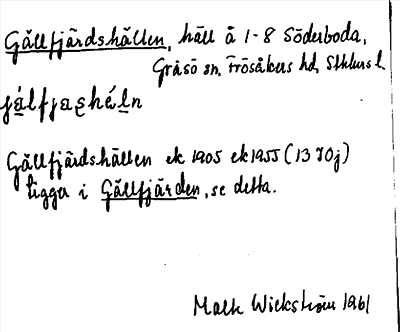 Gällfjärdshällen, häll å 1-8 Söderboda,
Gräsö sn, Frösåkers hd, Sthlms l.
Gällfjärdshällen ek 1905 ek 1955 (13 I 0j)
ligger i Gällfjärden, se detta.
Mats Wickström 1961